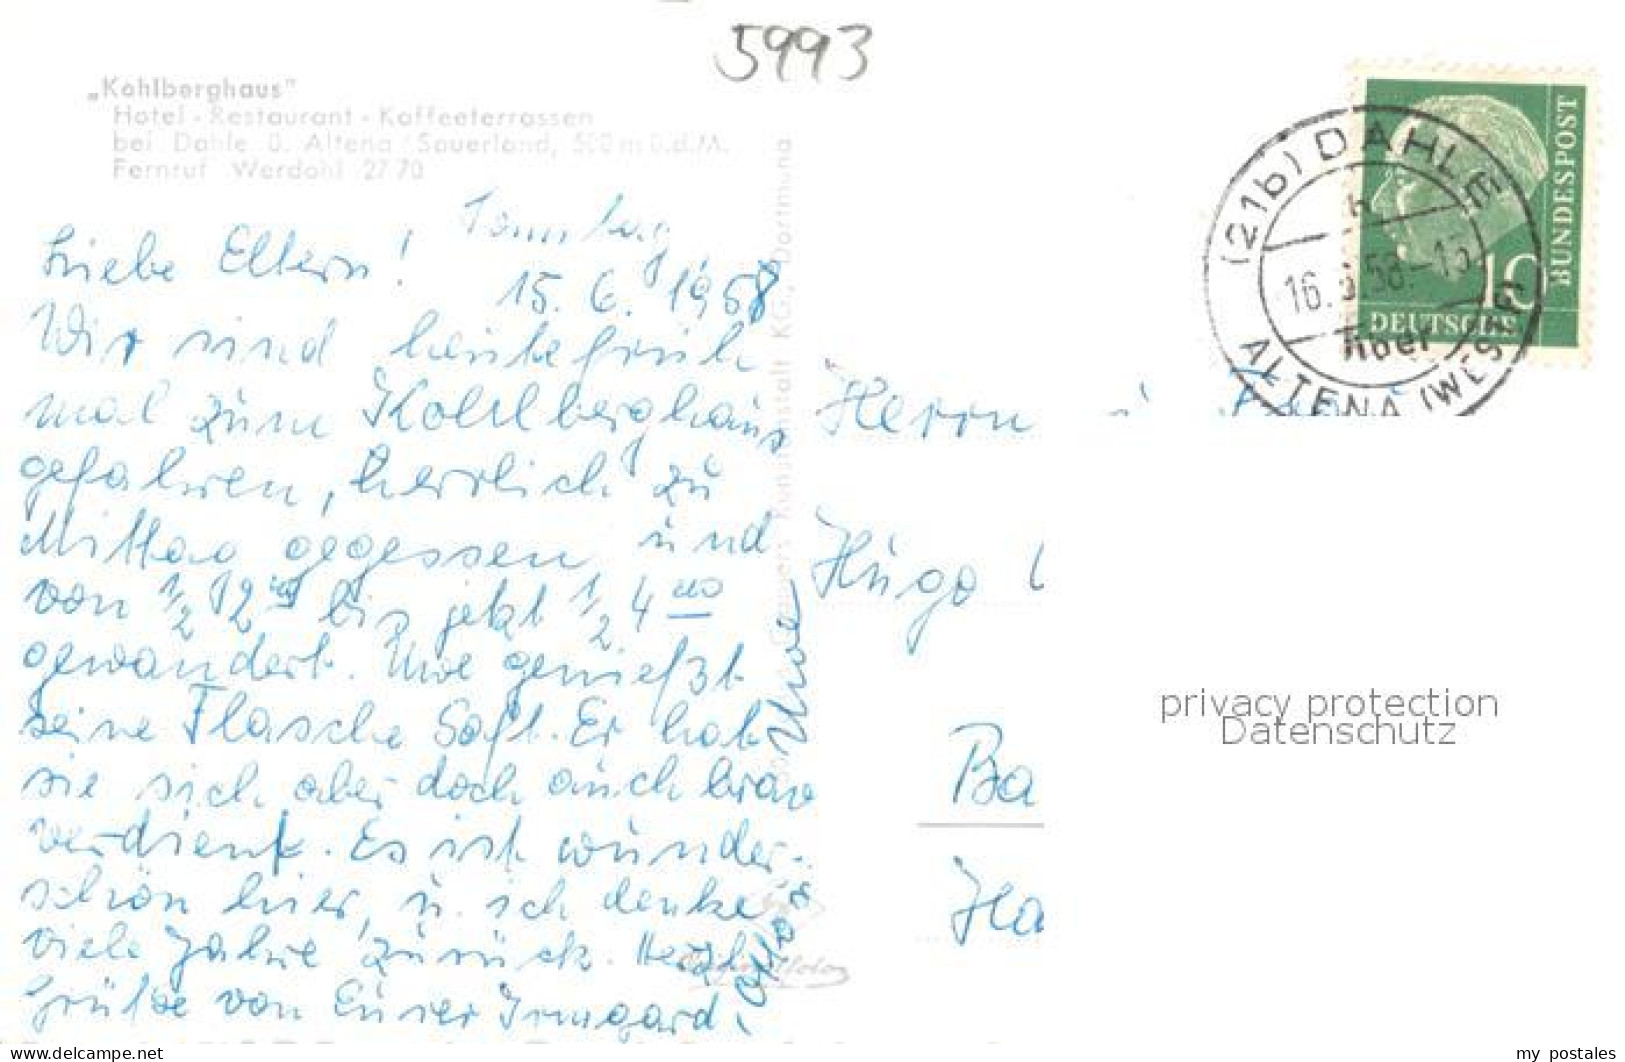 5993
„Kohlberghaus"
Hotel - Restaurant - Kaffeeterrassen
bei Dahle ü. Altena/Sauerland, 500 m ü.d.M.
Fernruf Werdohl 27 70
Sonntag
15. 6. 1958
Liebe Eltern!
Wir sind heute früh
mal zum Kohlberghaus
gefahren, herrlich zu
Mittag gegessen und
von 1/2 12 bis jetzt 1/2 4 00
gewandert. Uwe genießt
seine Flasche Saft. Er hat
sie sich aber doch auch brav
verdient. Es ist wunder-
schön hier, u. ich denke
viele Jahre zurück. Herzl.
Grüße von Eurer Irmgard,
Uwe
Kunstanstalt KG., Dortmund
Herrn
Hugo
Ba
Ha
(21b) DAHLE
16. 58.-15
über
ALTENA (WESTF)
BUNDESPOST
10
DEUTSCHE
privacy protection
Datenschutz
www.delcampe.net
my_postales